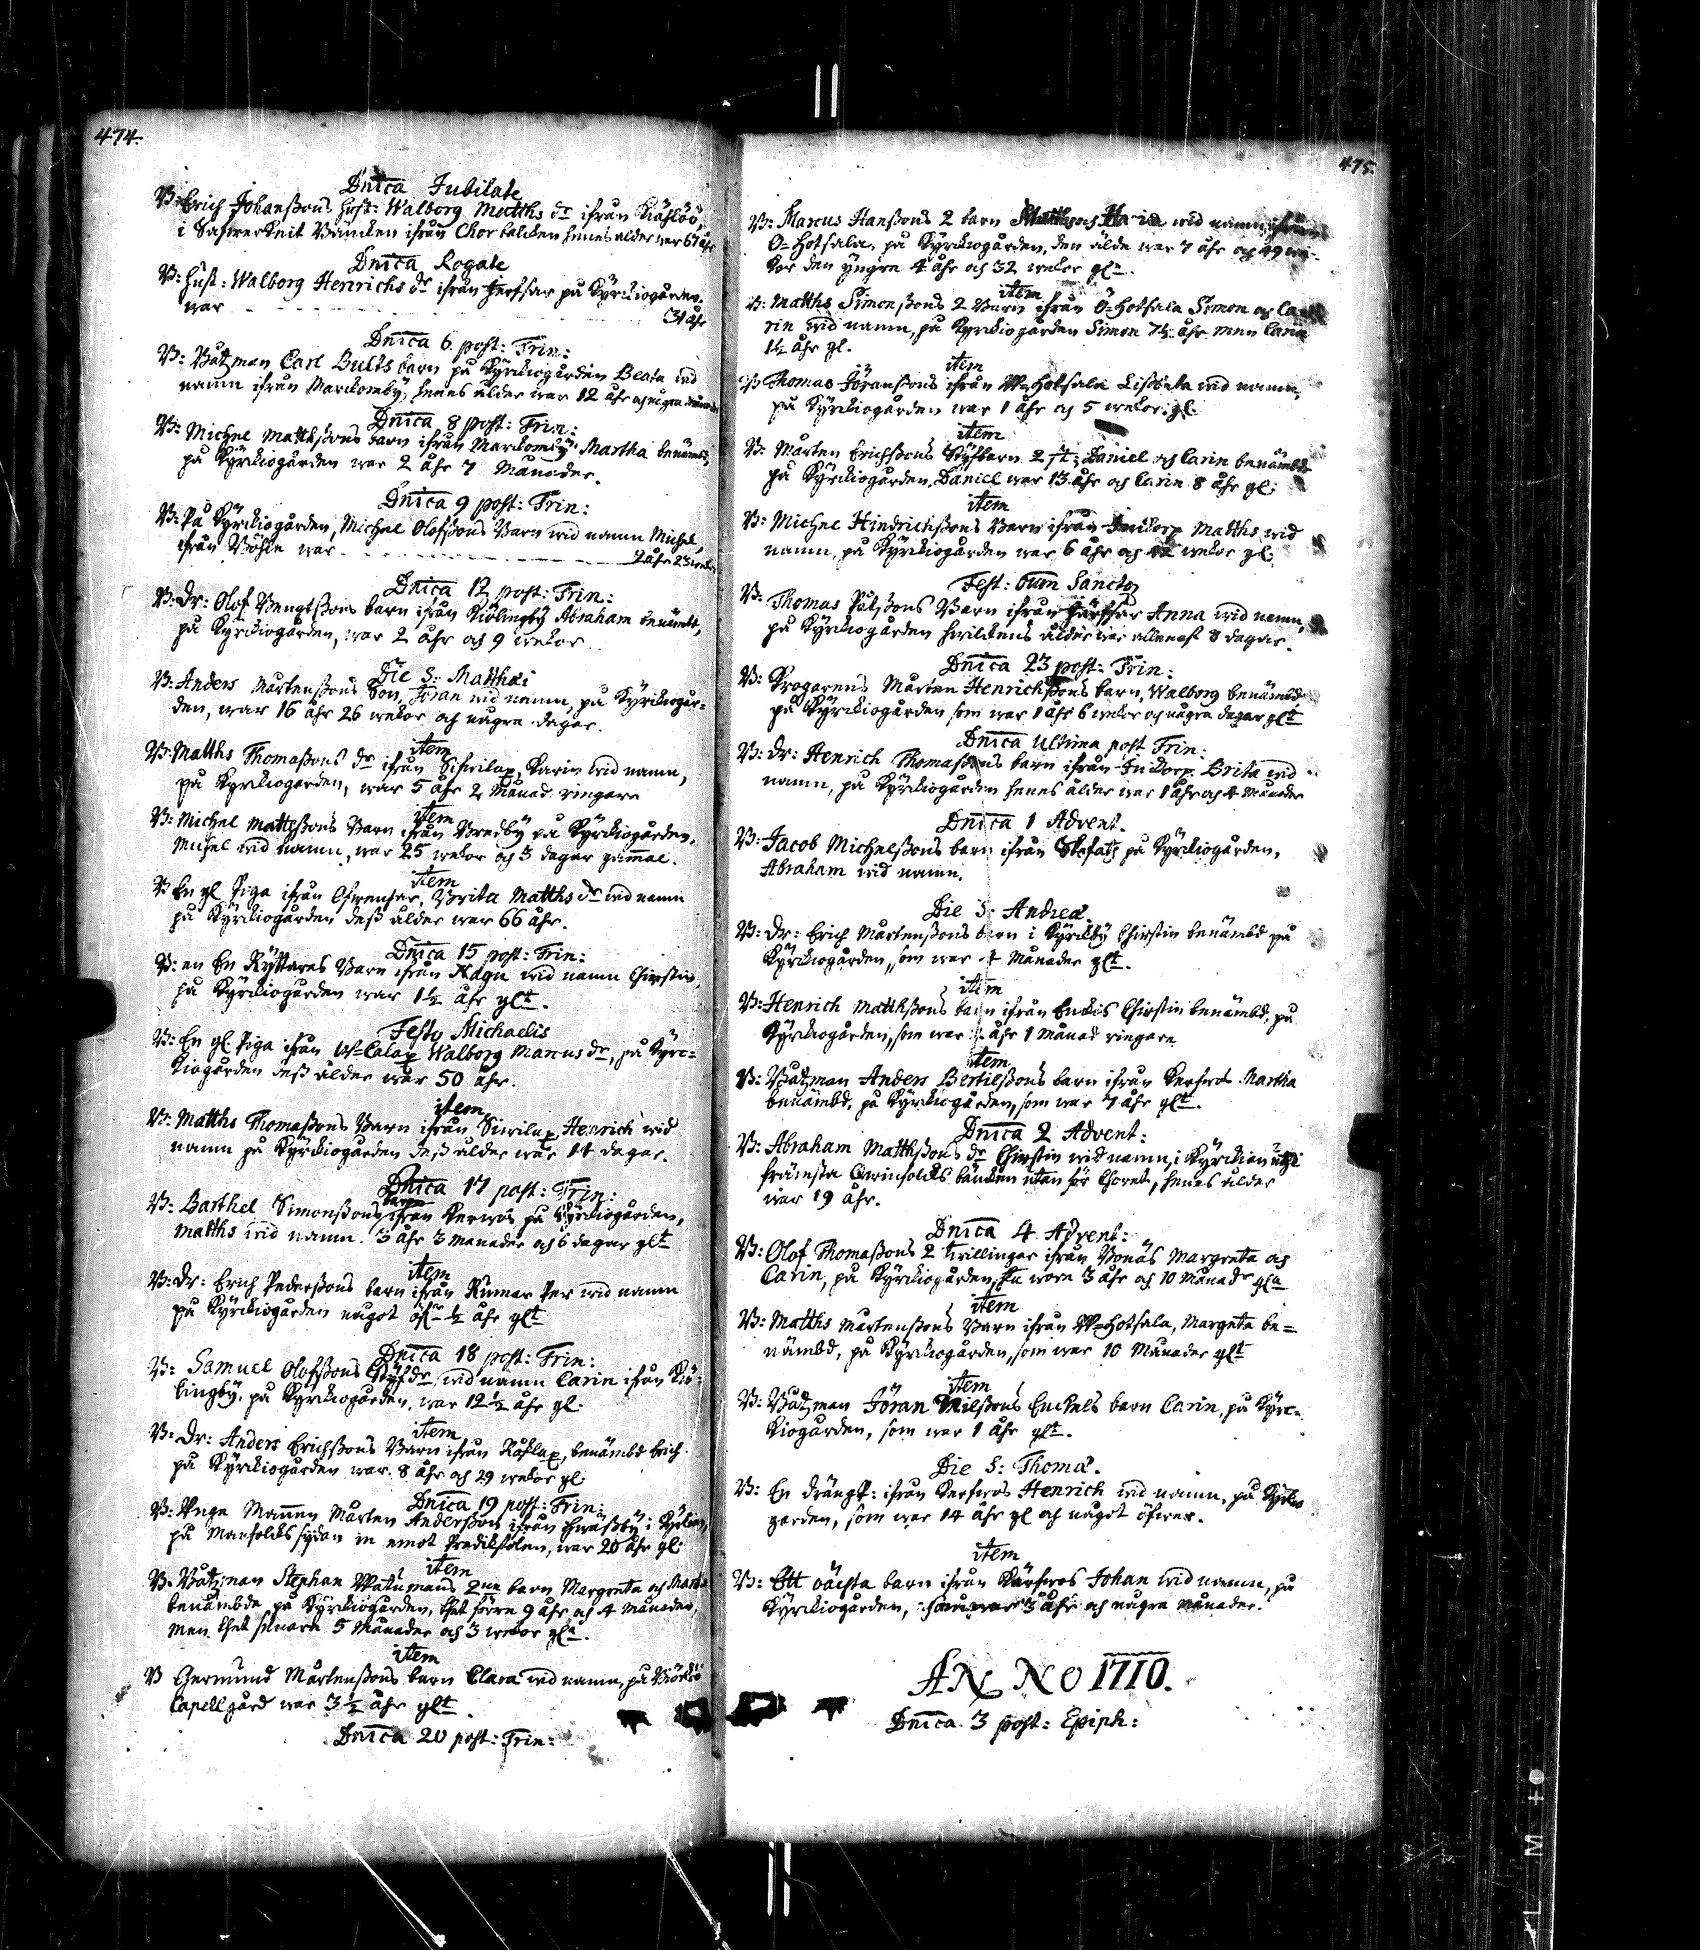 474.
Dnica Jubilate
B: Erich Johanßons hust: Walborg Matths dr ifrån
i Sacwerkeit Bäncken ifrån Chor balcken hennes ålder war 67 åhr
Dnica Rogate
B: hust: Walborg Henrichs dr ifrån på Kyrkiogården.
war 31 åhr
Dnica 6. post: Trin:
B: Båtzman Carl Bults barn på Kyrkiogården Beata wid
namn ifrån Marckomby, henes ålder war 12 åhr och några
Dnica 8 post: Trin:
B: Michel Matthßons barn ifrån Marckomby Martha benämbd,
på Kyrkiogården war 2 åhr 7 Månader.
Dnica 9 post: Trin:
B: På Kyrkiogården, Michel Olofßons Barn wid namn Michel,
ifrån Böhle war 2 åhr 23 wekor
Dnica 12 post: Trin:
B: Dr: Olof Bengtßons barn ifrån Kiölingby Abraham benämbt,
på Kyrkiogården, war 2 åhr och 9 wekor
Die S: Matthæi
B: Anders Mårtenßons Son, Jöran wid namn, på Kyrkiogår=
den, war 16 åhr 26 wekor och några dagar.
item
B: Matths Thomaßons dr ifrån Karin wid namn,
på Kyrkiogården, war 5 åhr 2 Månad ringare
item
B: Michel Matthßons Barn ifrån Bredby på Kyrkiogården.
Michel wid namn, war 25 wekor och 3 dagar gammal.
item
B: En gl Piga ifrån Brita Matths dr wid namn
på Kyrkiogården deß ålder war 66 åhr.
Dnica 15 post: Trin:
B: en En Ryttares Barn ifrån wid namn Chirstin,
på Kyrkiogården war 1½ åhr glt.
Festo Michaelis
B: En gl Piga ifrån W=Calax Walborg Marcus dr, på Kyrc=
kiogården deß ålder war 50 åhr.
item
B: Matths Thomaßons Barn ifrån Siwilax Henrich wid
namn på Kyrkiogården deß ålder war 14 dagar.
Dnica 17 post: Trin:
barn
B: Barthel Simonßons ifrån Kerwås på Kyrkiogården,
Matths wid namn. 3 åhr 3 Månader och 6 dagar glt
item
B: Dr: Erich Pederßons barn ifrån Rumar Per wid namn
på Kyrkiogården något öfr ½ åhr glt
Dnica 18 post: Trin:
B: Samuel Olofßons Styfdr, wid namn Carin ifrån Kiö=
lingby. på Kyrkiogården. war 12½ åhr gl:
item
B: Dr: Anders Erichßons Barn ifrån benämbd Erich
på Kyrkiogården war. 8 åhr och 29 wekor gl:
Dnica 19 post: Trin:
B: Unge Mannen Mårten Anderßon ifrån i Kyrkan,
på Manfolcks sydan in emot Predikstolen, war 20 åhr gl:
item
B: Båtzman Stephan Watumans 2ne barn Margreta och
benämbde på Kyrkiogården, thet förre 9 åhr och 4 Månader,
men thet senare 5 Månader och 3 wekor gla.
item
B Germund Mårtenßons barn Clara wid namn, på Biörkö
Capellgård war 3½ åhr glt.
Dnica 20 post: Trin:
475.
B: Marcus Hanßons 2 barn wid namn
Ö=Hotsala, på Kyrkiogården, den älde war 7 åhr och 49 we=
kor den yngre 4 åhr och 32 wekor gla.
item
B: Matths Simonßons 2 Barn ifrån Ö=Hotsala Simon och Ca=
rin wid namn, på Kyrkiogården Simon 7½ åhr men Carin
1½ åhr gl.
item
B: Thomas Jöranßons ifrån W=Hotsala Lisbeta wid namn,
på Kyrkiogården war 1 åhr och 5 wekor gl.
item
B: Mårten Erichßons Styfbarn 2 st; Daniel och Carin benämbde
på Kyrkiogården, Daniel war 13 åhr och Carin 8 åhr gl:
item
B: Michel Hindrichßons Barn ifrån Matths wid
namn, på Kyrkiogården war 6 åhr och wekor gl
Fest: Oum Sancto
B: Thomas Barn ifrån Anna wid namn,
på Kyrkiogården hwilckens ålder war allenast 8 dagar.
Dnica 23 post: Trin:
B: Krogarens Mårten Henrichßons barn, Walborg benämbd
på Kyrkiogården som war 1 åhr 6 wekor och några dagar glt
Dnica Ultima post Trin:
B: Dr: Henrich Thomaßons barn ifrån Brita wid
namn, på Kyrkiogården henes ålder war 1 åhr och 4 Månader
Dnica 1 Advent.
B: Jacob Michelßons barn ifrån på Kyrkiogården,
Abraham wid namn.
Die S: Andreæ.
B: Dr: Erich Mårtenßons barn i Kyrkby Chirstin benämbd på
Kyrkiogården, som war Månader glt.
item
B: Henrich Matthßons barn ifrån Chirstin benämbd, på
Kyrkiogården, som war åhr 1 Månad ringare
item
B: Båtzman Anders Bertilßons barn ifrån Martha
benämbd, på Kyrkiogården, som war 7 åhr glt.
Dnica 2 Advent:
B: Abraham Matthßons dr Chirstin wid namn, i Kyrkian uthi
främsta Qwinfolcks bäncken utan för Choret, henes ålder
war 19 åhr.
Dnica 4 Advent:
B: Olof Thomaßons 2 twillingar ifrån Bonäs Margreta och
Carin, på Kyrkiogården, Då wore 3 åhr och 10 Månadr gla
item
B: Matths Mårtenßons Barn ifrån W=Hotsala, Margeta be=
nämbd, på Kyrkiogården, som war 10 Månader glt
item
B: Båtzman Jöran Nilßons Enckels barn Carin, på Kyrc=
kiogården, som war 1 åhr glt.
Die S: Thomæ.
B: En drängP: ifrån Henrich wid namn, på Kyrkio
garden, som war 14 åhr gl och något öfwer.
item
B: Ett oächta barn ifrån Johan wid namn, på
Kyrkiogården, som war 3 åhr och några månader.
ANNO 1710.
Dnica 3 post: Epiph: